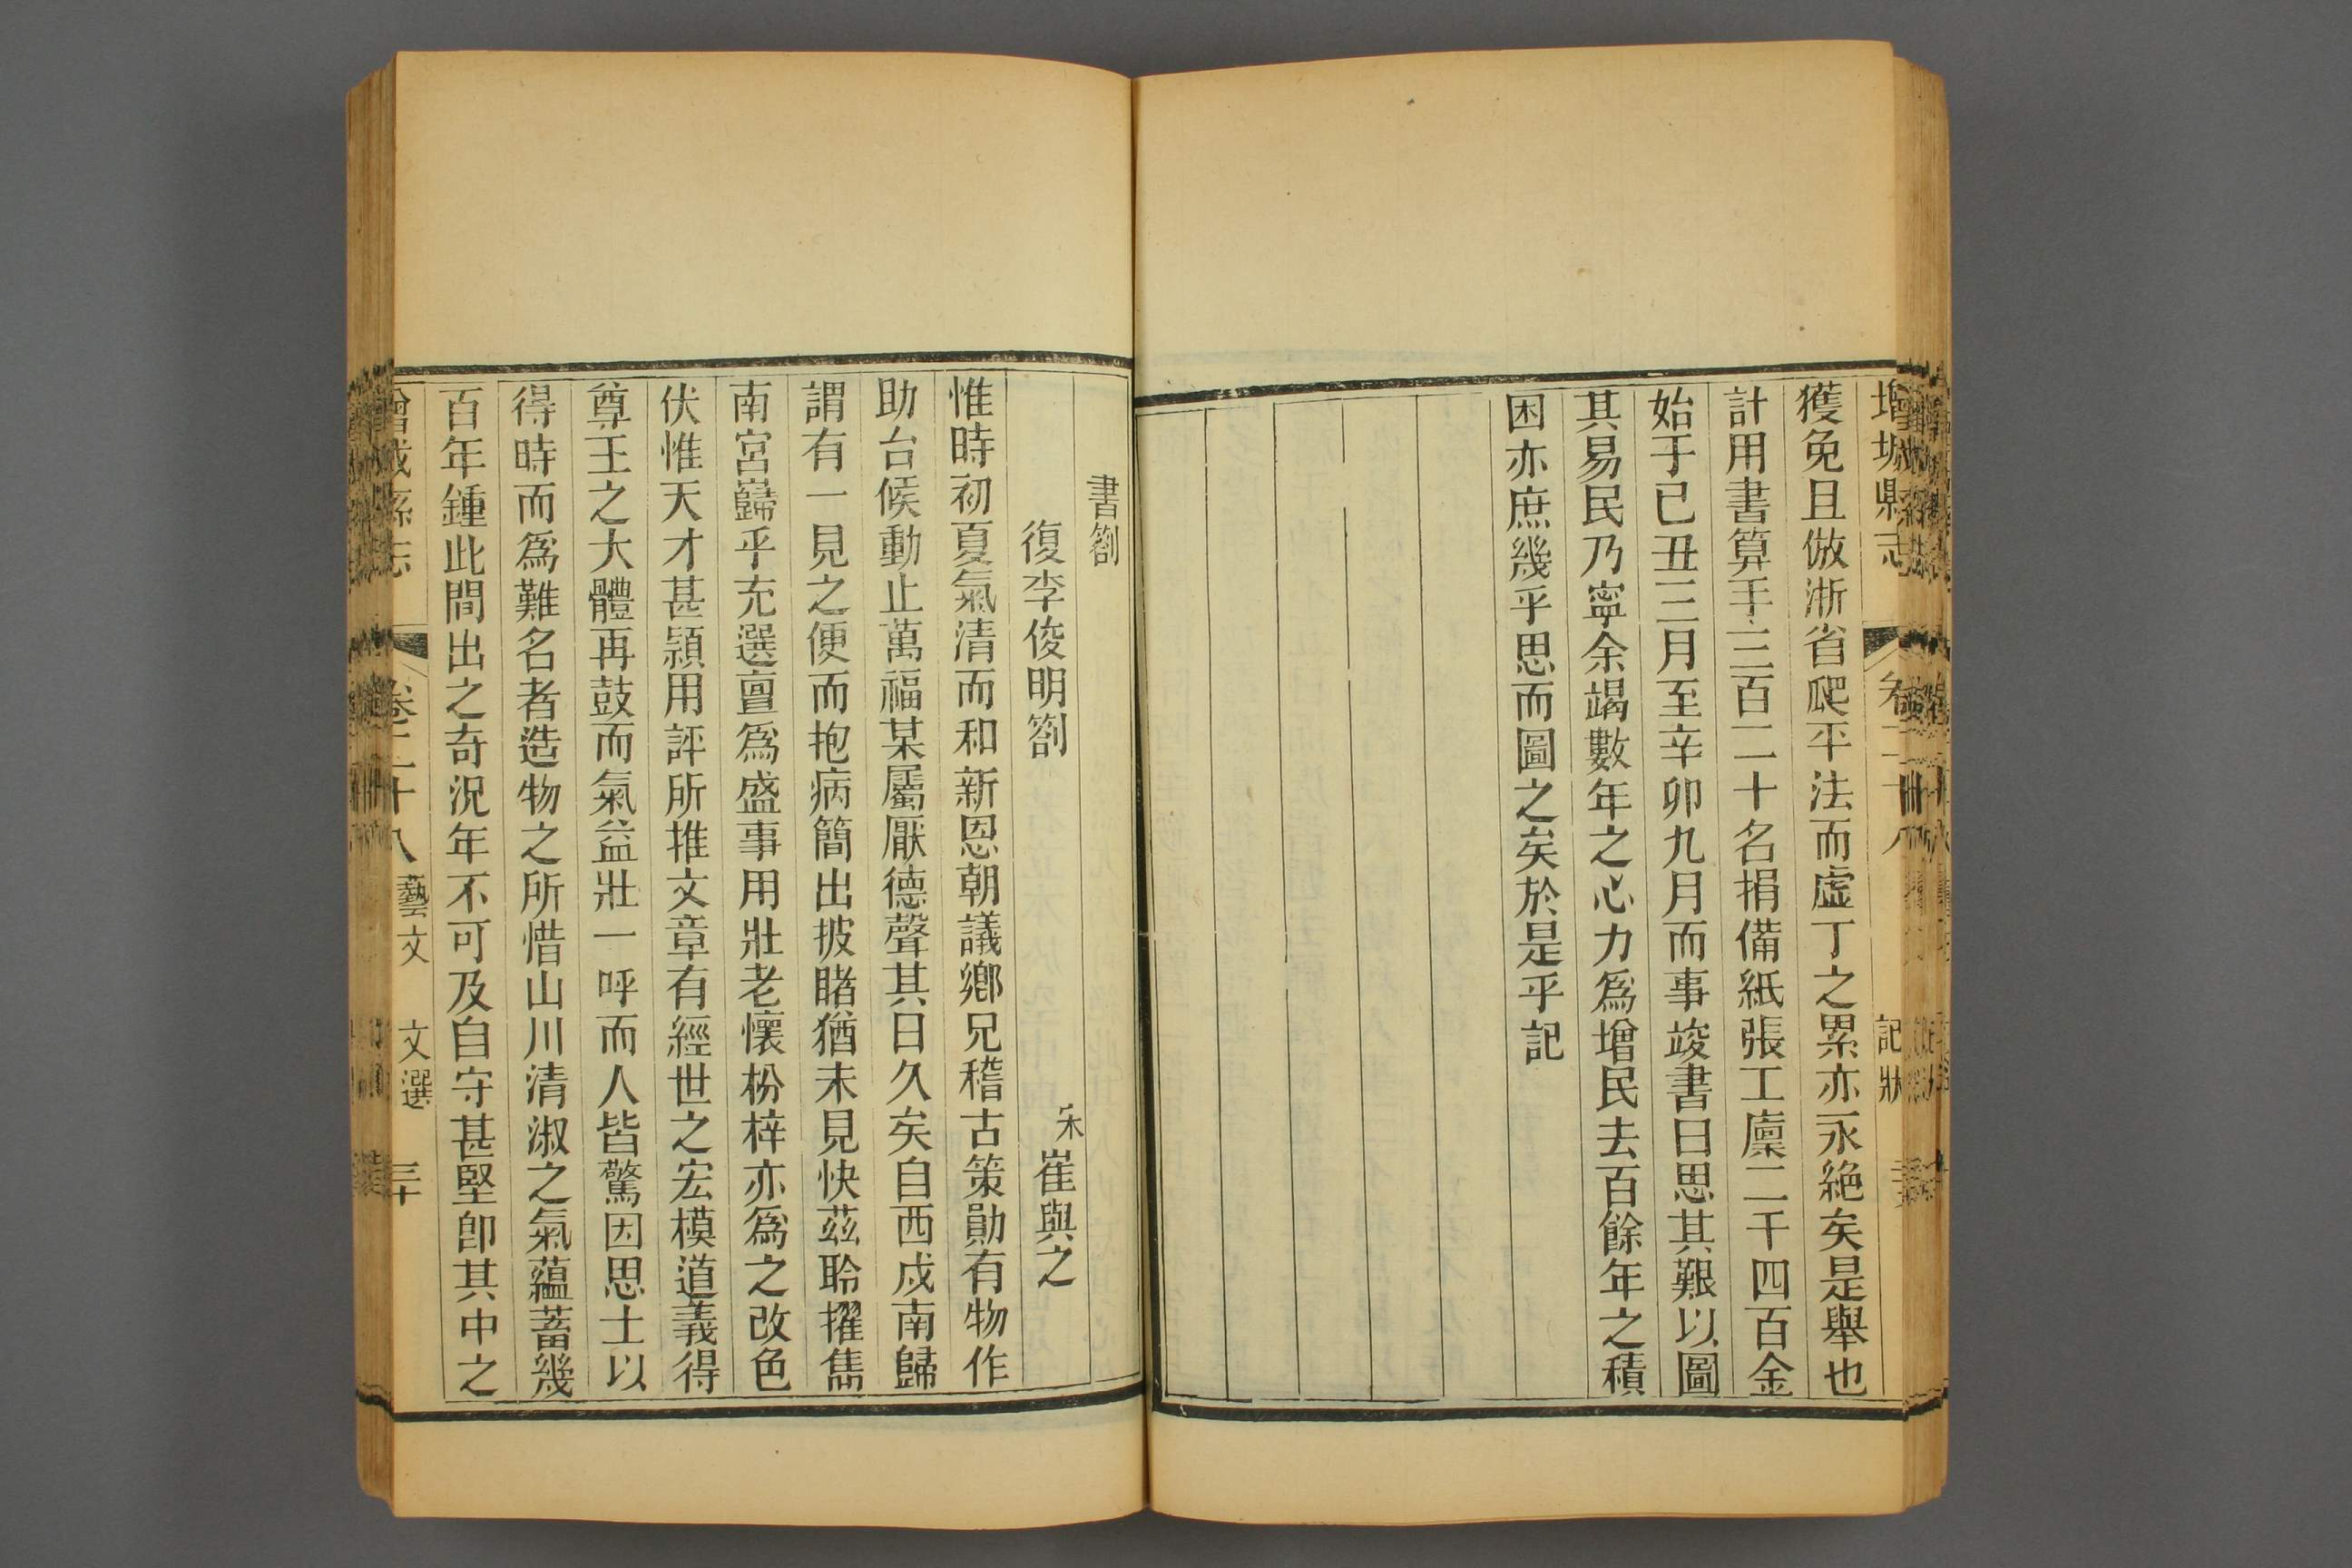 增城縣志
卷二十八
記狀
獲免且倣浙省爬平法而虛丁之累亦永絕矣是舉也
計用書算手三百二十名捐備紙張工廩二千四百金
始于已丑三月至辛卯九月而事竣書曰思其艱以圖
其易民乃寧余竭數年之心力爲增民去百餘年之積
困亦庶幾乎思而圖之矣於是乎記
書劄
復李俊明劄
宋
崔與之
惟時初夏氣清而和新恩朝議鄉兄稽古策勛有物作
助台候動止萬福某屬厭德聲其日久矣自西戍南歸
謂有一見之便而抱病簡出披睹猶未見快茲聆擢雋
南宮巋乎充選亶爲盛事用壯老懷枌梓亦爲之改色
伏惟天才甚穎用評所推文章有經世之宏模道義得
尊王之大體再鼓而氣益壯一呼而人皆驚因思士以
得時而爲難名者造物之所惜山川清淑之氣蘊蓄幾
百年鍾此間出之奇況年不可及自守甚堅卽其中之
增城縣志
卷二十八
藝文
文選
三十